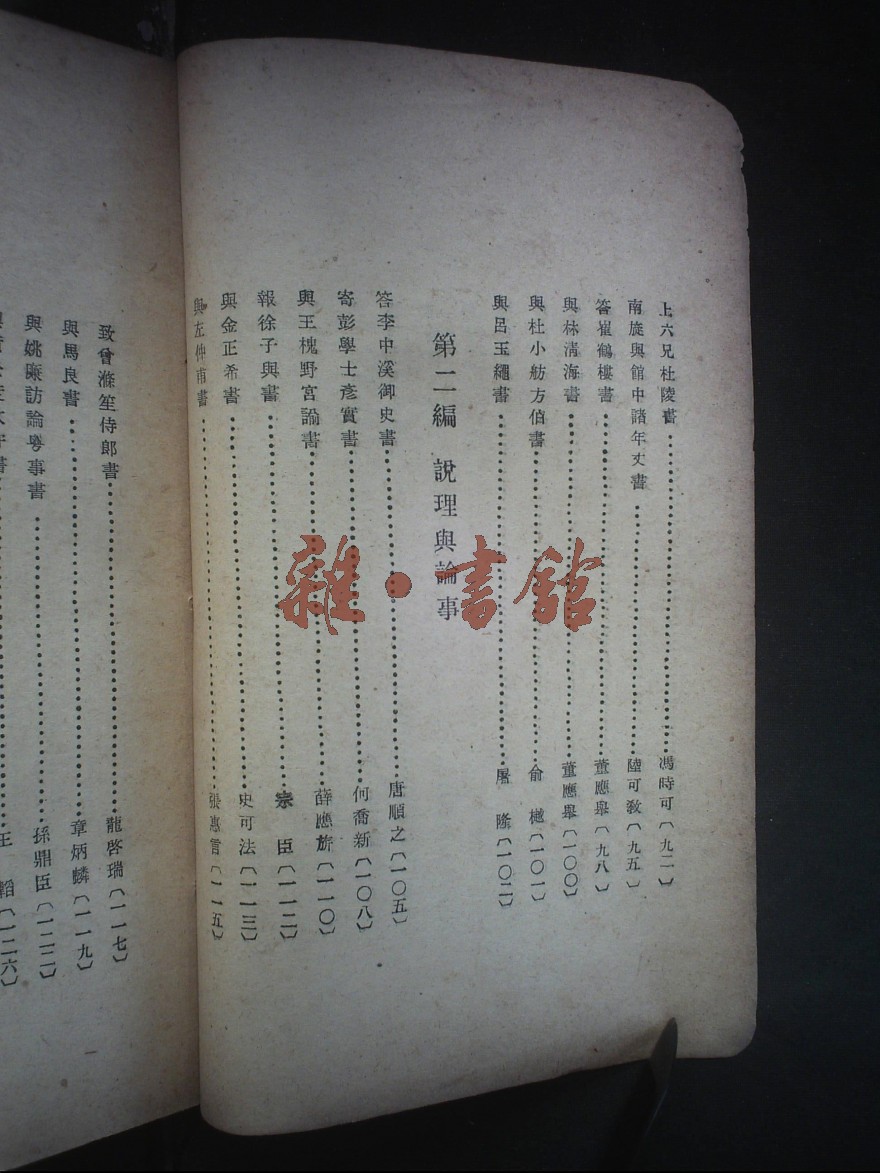 上六兄杜陵書……馮時可〔九二〕
南旋與館中諸年丈書……陸可敎〔九五〕
答崔鶴樓書……董應舉〔九八〕
與林淸海書……董應舉〔一〇〇〕
與杜小舫方伯書……俞樾〔一〇一〕
與呂玉繩書……屠隆〔一〇二〕
第二編 說理與論事
答李中溪御史書……唐順之〔一〇五〕
寄彭學士彥實書……何喬新〔一〇八〕
與王槐野宮諭書……薛應旂〔一一〇〕
報徐子與書……宗臣〔一一二〕
與金正希書……史可法〔一一三〕
與左仲甫書……張惠言〔一一五〕
致曾滌笙侍郎書……龍啓瑞〔一一七〕
與馬良書……章炳麟〔一一九〕
與姚石訪論粵事書……孫鼎臣〔一二二〕
王韜〔一二六〕
一
雜·書館